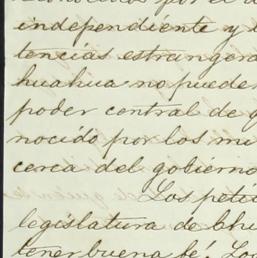 independiente y
tencias estrangera
huahua no pueden
poder central de
nocido por los mi
cerca del gobierno
Los peti
legislatura de Chi
tener buena fé. Los